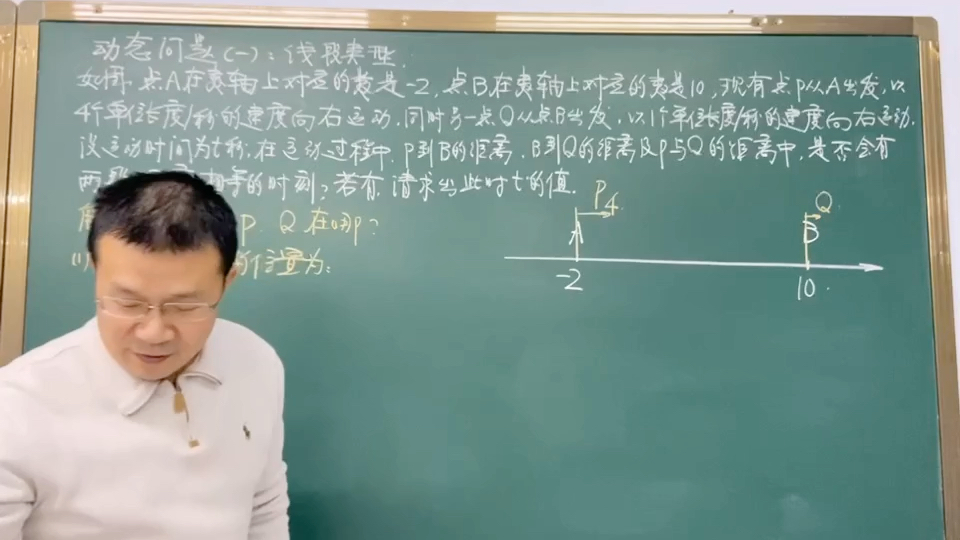 动态问题(一):线段类型.
如图,点A在数轴上对应的数是-2,点B在数轴上对应的数是10,现有点P从A出发,以
4个单位长度/秒的速度向右运动,同时另一点Q从点B出发,以1个单位长度/秒的速度向右运动.
设运动时间为t秒,在运动过程中,P到B的距离,B到Q的距离及P与Q的距离中,是否会有
两段 相等的时刻?若有,请求出此时t的值.
P、Q在哪?
(1) 的位置为:
P 4
Q
A
B
-2
10